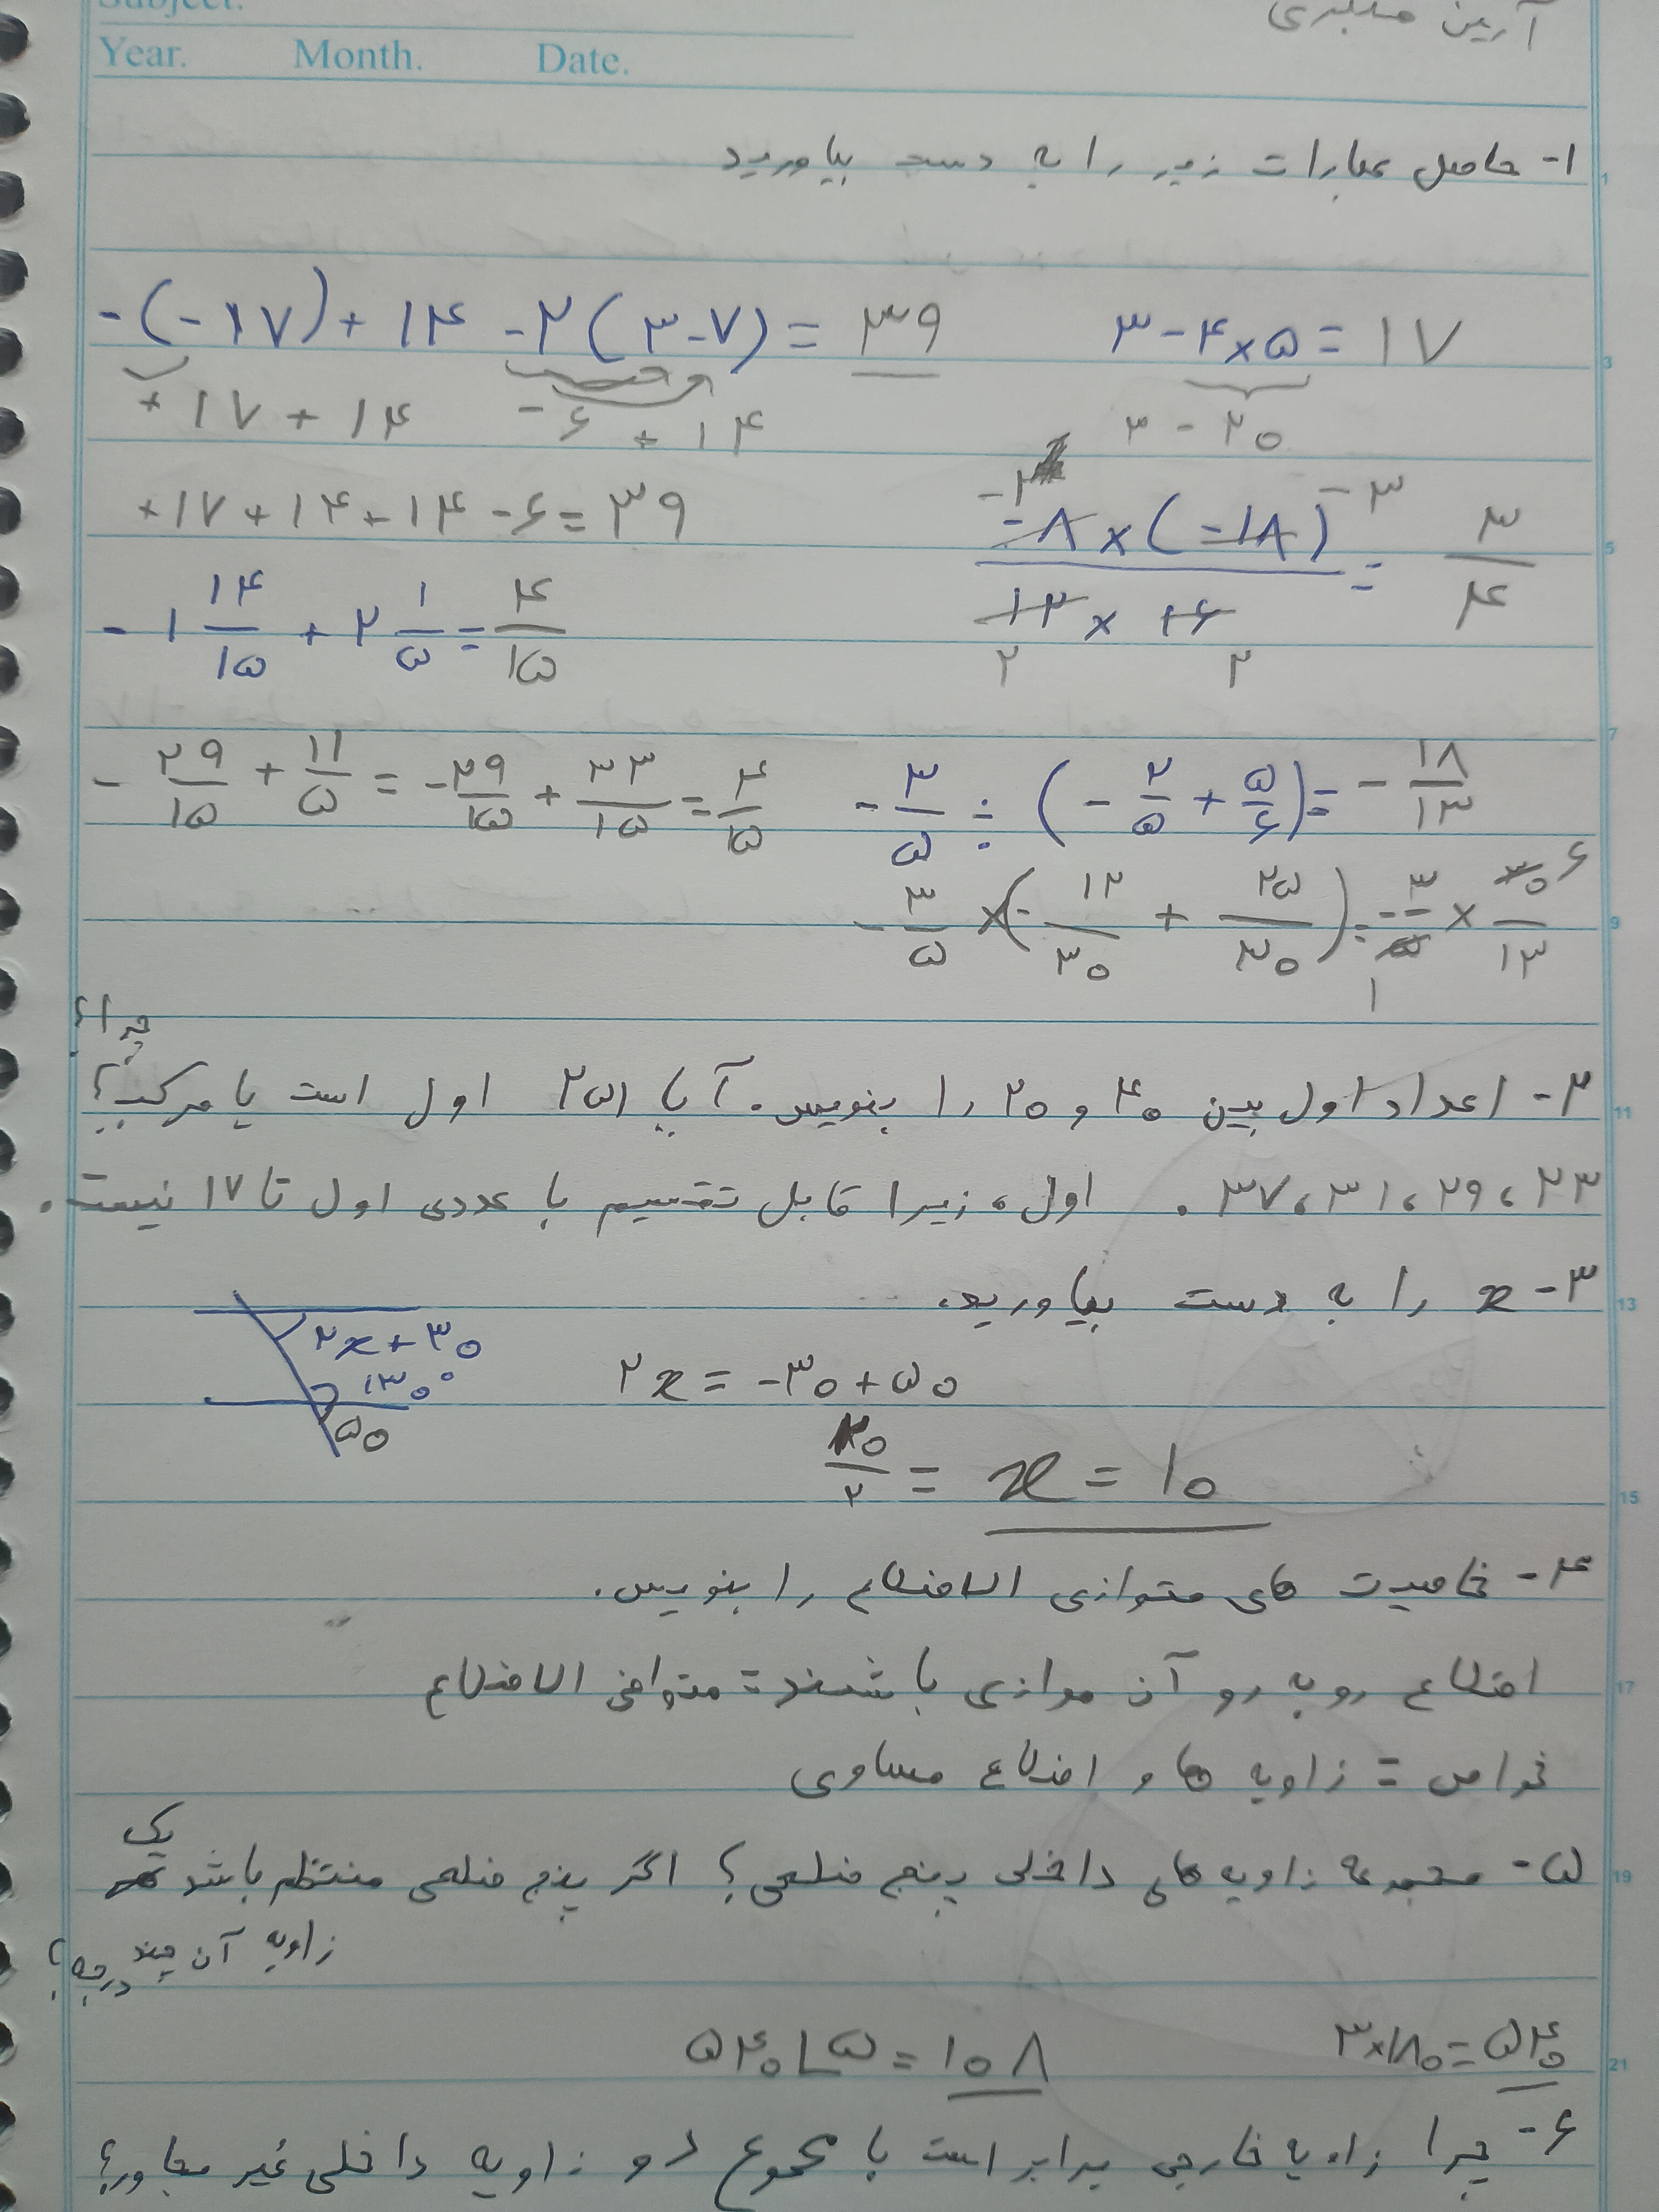 Subject.
آرین
Year. Month. Date.
۱- حاصل عبارات زیر را به دست بیاورید
-(-۱۷)+۱۴-۲(۳-۷)=۳۹
+۱۷+۱۴ -۶+۱۴
+۱۷+۱۴+۱۴-۶=۳۹
۳-۴×۵=۱۷
۳-۲۰
-۸×(-۱۸)/۱۲×۱۶ = ۳/۴
-۲ -۳
۲ ۲
-۱ ۱۴/۱۵ + ۲ ۱/۵ = ۴/۱۵
-۲۹/۱۵ + ۱۱/۵ = -۲۹/۱۵ + ۳۳/۱۵ = ۴/۱۵
-۳/۵ ÷ (-۲/۵ + ۵/۶) = -۱۸/۱۳
-۳/۵ × (-۱۲/۳۰ + ۲۵/۳۰) = -۳/۵ × ۳۰/۱۳
۶
۱
۲- اعداد اول بین ۴۰ و ۲۰ را بنویس. آیا ۲۵۱ اول است یا مرکب؟ چرا؟
۲۳، ۲۹، ۳۱، ۳۷. اول، زیرا قابل تقسیم با عددی اول تا ۱۷ نیست.
۳- x را به دست بیاورید.
۲x+۳۰
۱۳۰°
۵۰
۲x=-۳۰+۵۰
۲۰/۲ = x = ۱۰
۴- خاصیت های متوازی الاضلاع را بنویس.
اضلاع روبه رو آن موازی باشند = متوازی الاضلاع
خواص = زاویه ها و اضلاع مساوی
۵- مجموعه زاویه های داخلی پنج ضلعی؟ اگر پنج ضلعی منتظم باشد یک
زاویه آن چند درجه؟
۳×۱۸۰=۵۴۰
۵۴۰ ∟۵=۱۰۸
۶- چرا زاویه خارجی برابر است با مجموع دو زاویه داخلی غیر مجاور؟
1
3
5
7
9
11
13
15
17
19
21